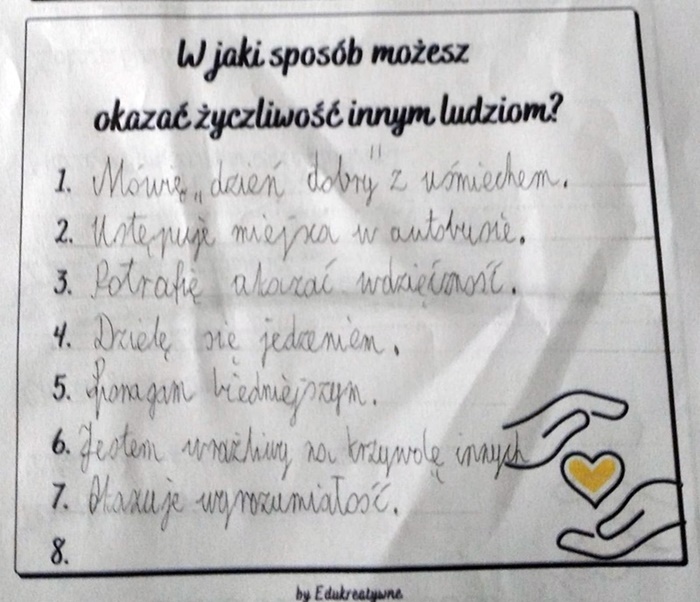 W jaki sposób możesz
okazać życzliwość innym ludziom?
1. Mówię „dzień dobry" z uśmiechem.
2. Ustępuję miejsca w autobusie.
3. Potrafię okazać wdzięczność.
4. Dzielę się jedzeniem.
5. Pomagam biedniejszym.
6. Jestem wrażliwy na krzywdę innych
7. Okazuje wyrozumiałość.
8.
by Edukreatywne